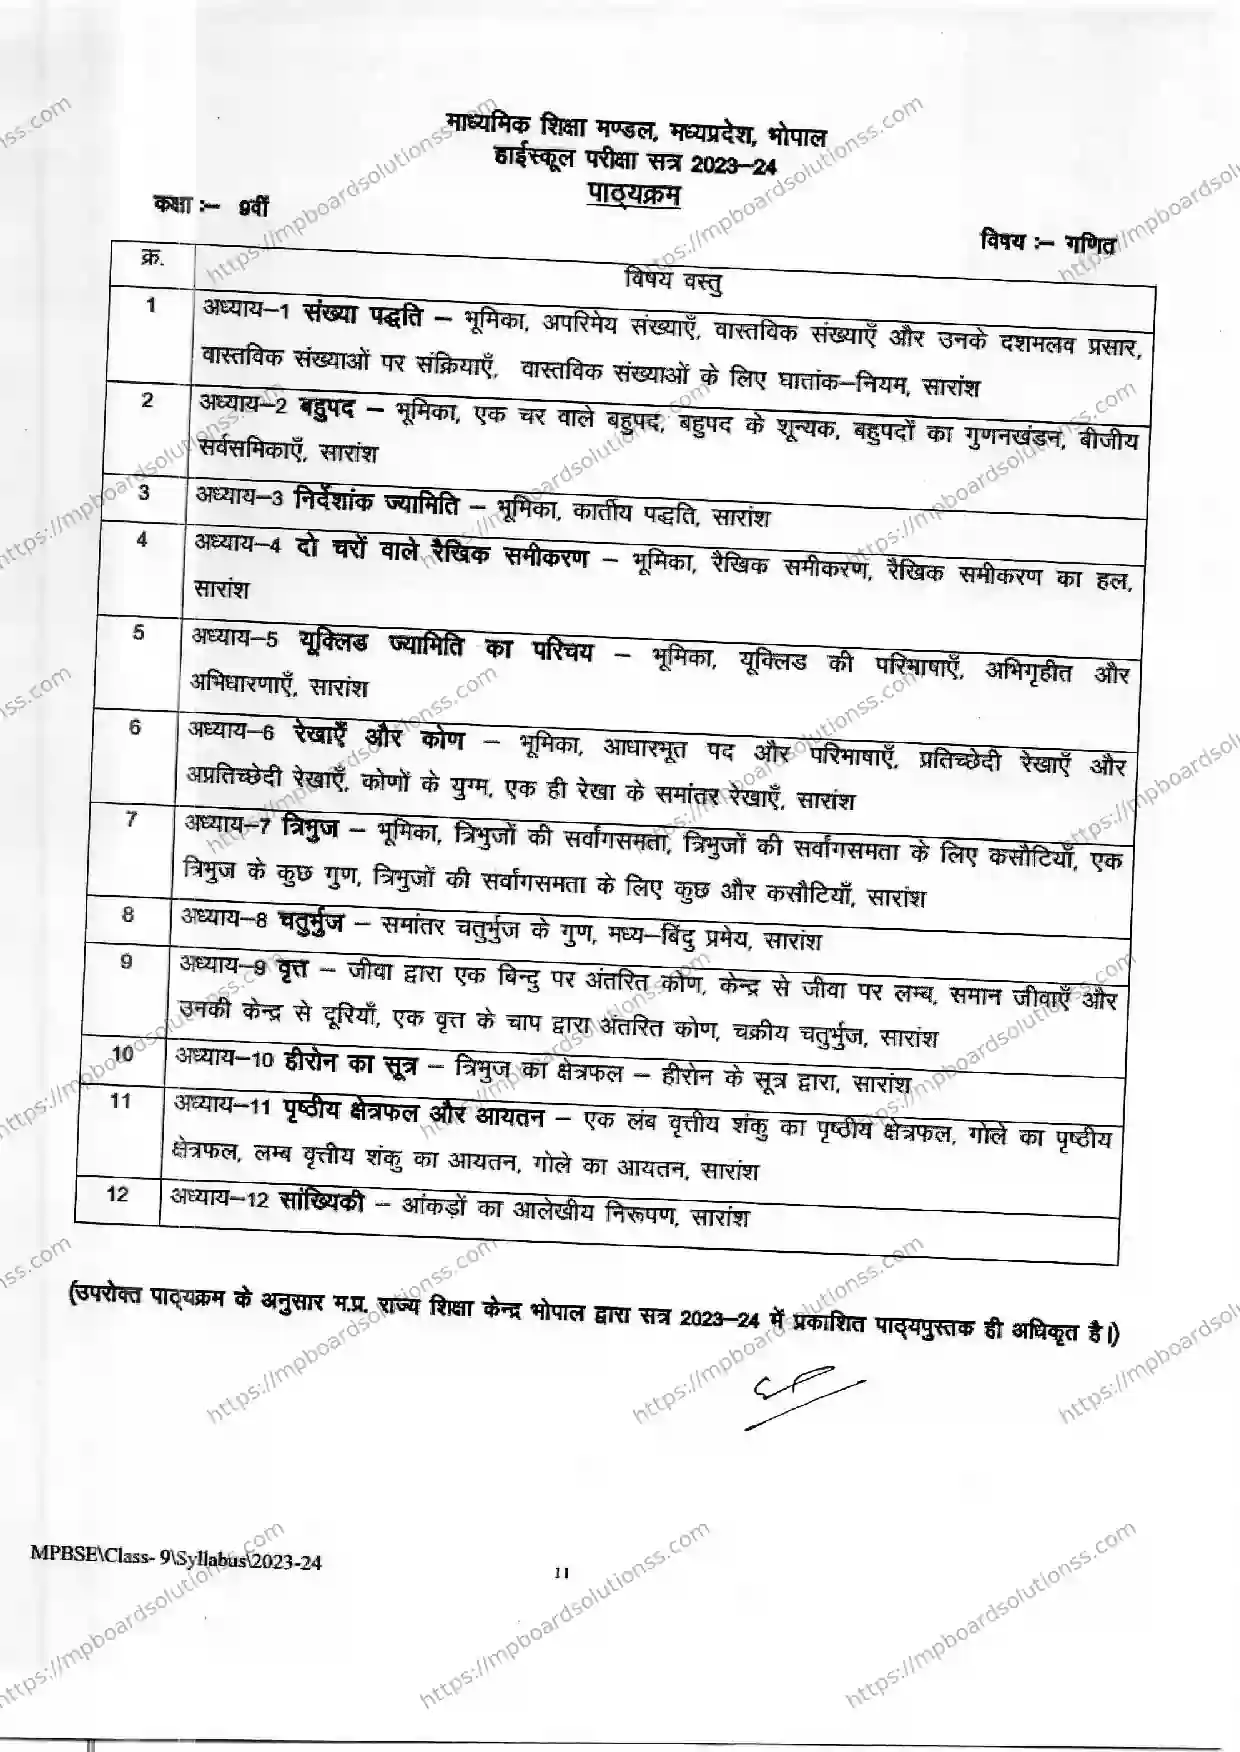 माध्यमिक शिक्षा मण्डल, मध्यप्रदेश, भोपाल
हाईस्कूल परीक्षा सत्र 2023–24
पाठ्यक्रम
कक्षा :– 9वीं
विषय :– गणित
क्र. विषय वस्तु
1 अध्याय–1 संख्या पद्धति – भूमिका, अपरिमेय संख्याएँ, वास्तविक संख्याएँ और उनके दशमलव प्रसार,
वास्तविक संख्याओं पर संक्रियाएँ, वास्तविक संख्याओं के लिए घातांक–नियम, सारांश
2 अध्याय–2 बहुपद – भूमिका, एक चर वाले बहुपद, बहुपद के शून्यक, बहुपदों का गुणनखंडन, बीजीय
सर्वसमिकाएँ, सारांश
3 अध्याय–3 निर्देशांक ज्यामिति – भूमिका, कार्तीय पद्धति, सारांश
4 अध्याय–4 दो चरों वाले रैखिक समीकरण – भूमिका, रैखिक समीकरण, रैखिक समीकरण का हल,
सारांश
5 अध्याय–5 यूक्लिड ज्यामिति का परिचय – भूमिका, यूक्लिड की परिभाषाएँ, अभिगृहीत और
अभिधारणाएँ, सारांश
6 अध्याय–6 रेखाएँ और कोण – भूमिका, आधारभूत पद और परिभाषाएँ, प्रतिच्छेदी रेखाएँ और
अप्रतिच्छेदी रेखाएँ, कोणों के युग्म, एक ही रेखा के समांतर रेखाएँ, सारांश
7 अध्याय–7 त्रिभुज – भूमिका, त्रिभुजों की सर्वांगसमता, त्रिभुजों की सर्वांगसमता के लिए कसौटियाँ, एक
त्रिभुज के कुछ गुण, त्रिभुजों की सर्वांगसमता के लिए कुछ और कसौटियाँ, सारांश
8 अध्याय–8 चतुर्भुज – समांतर चतुर्भुज के गुण, मध्य–बिंदु प्रमेय, सारांश
9 अध्याय–9 वृत्त – जीवा द्वारा एक बिन्दु पर अंतरित कोण, केन्द्र से जीवा पर लम्ब, समान जीवाएँ और
उनकी केन्द्र से दूरियाँ, एक वृत्त के चाप द्वारा अंतरित कोण, चक्रीय चतुर्भुज, सारांश
10 अध्याय–10 हीरोन का सूत्र – त्रिभुज का क्षेत्रफल – हीरोन के सूत्र द्वारा, सारांश
11 अध्याय–11 पृष्ठीय क्षेत्रफल और आयतन – एक लंब वृत्तीय शंकु का पृष्ठीय क्षेत्रफल, गोले का पृष्ठीय
क्षेत्रफल, लम्ब वृत्तीय शंकु का आयतन, गोले का आयतन, सारांश
12 अध्याय–12 सांख्यिकी – आंकड़ों का आलेखीय निरूपण, सारांश
(उपरोक्त पाठ्यक्रम के अनुसार म.प्र. राज्य शिक्षा केन्द्र भोपाल द्वारा सत्र 2023–24 में प्रकाशित पाठ्यपुस्तक ही अधिकृत है।)
MPBSE\Class- 9\Syllabus\2023-24
11
https://mpboardsolutionss.com